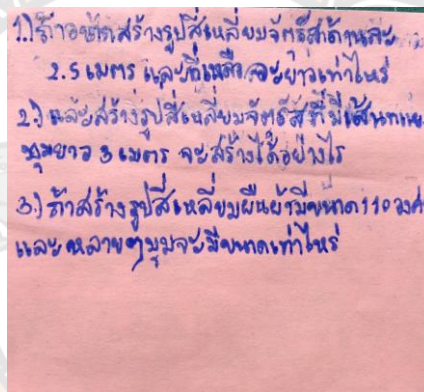 1.) ถ้าอยากสร้างรูปสี่เหลี่ยมจัตุรัสด้านละ
2.5 เมตร และที่เหลือจะยาวเท่าไหร่
2.) และสร้างรูปสี่เหลี่ยมจัตุรัสที่มีเส้นทแยง
มุมยาว 3 เมตร จะสร้างได้อย่างไร
3.) ถ้าสร้างรูปสี่เหลี่ยมผืนผ้ามีขนาด 110 องศา
และหลายๆมุมจะมีขนาดเท่าไหร่